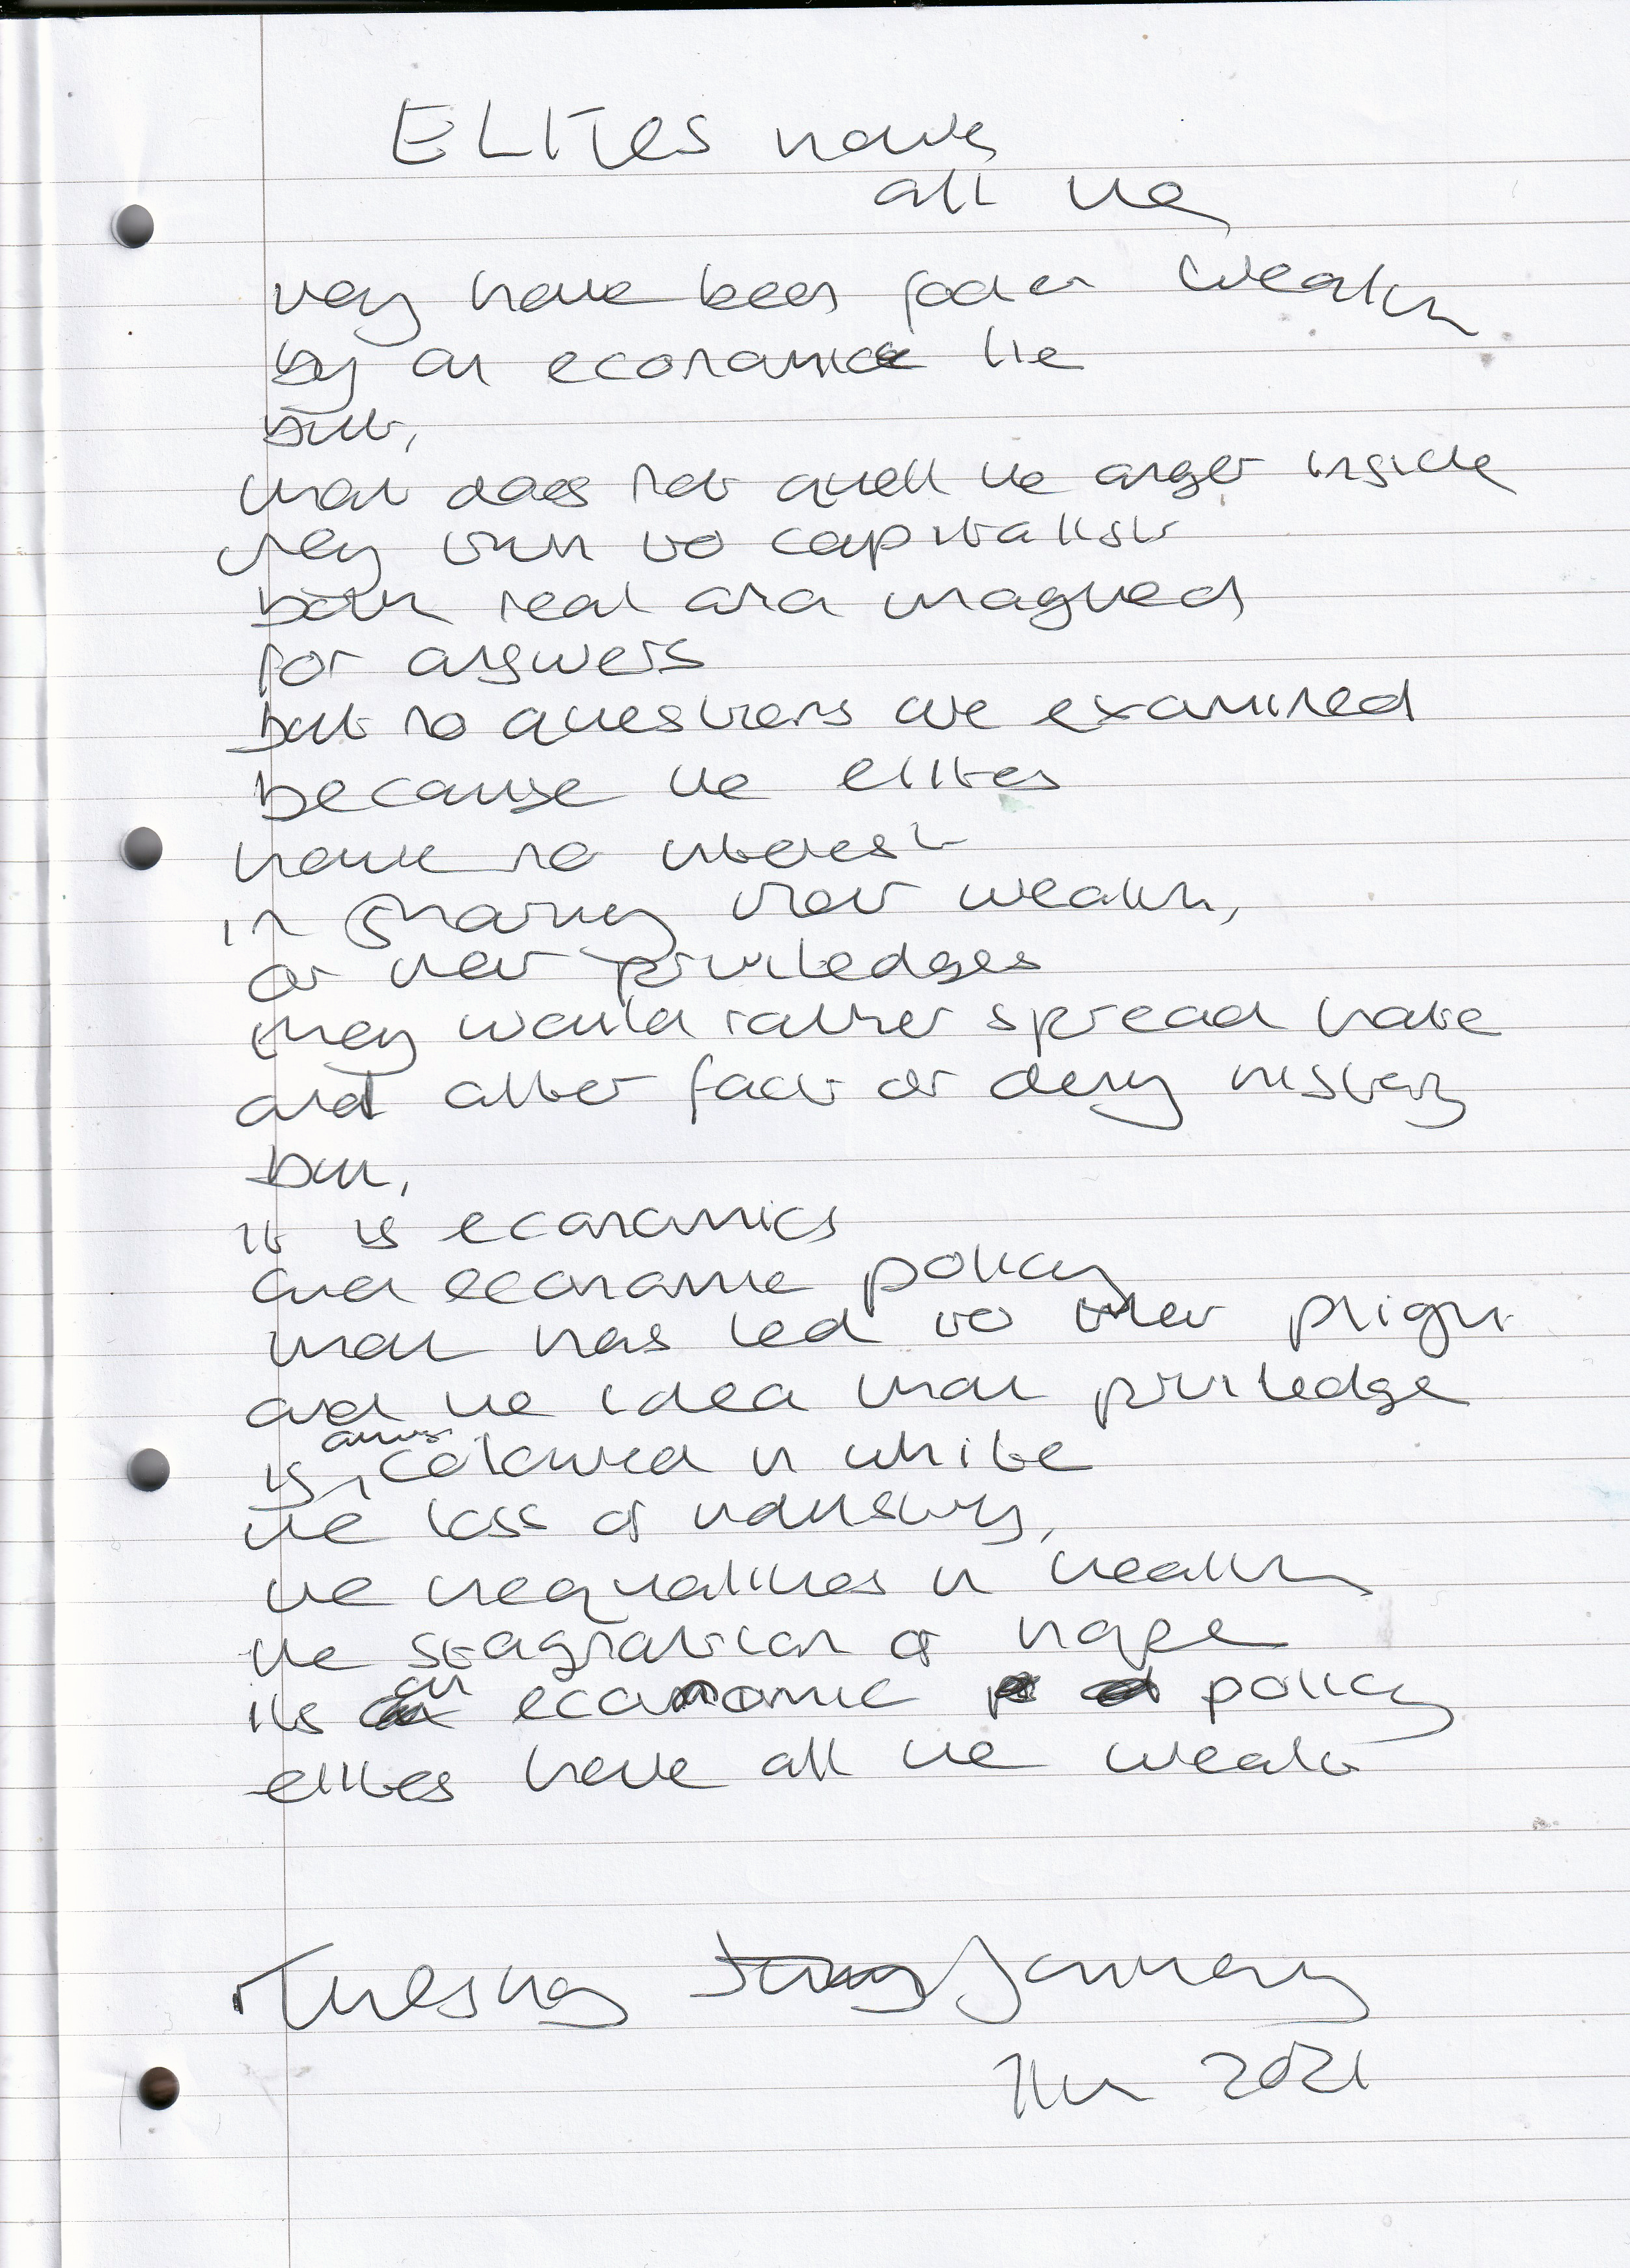 ELITES have
all the
they have been fooled wealth
by an economic lie
but,
that does not quell the anger inside
they turn to capitalists
both real and imagined
for answers
but no questions are examined
because the elites
have no interest
in sharing their wealth,
or their priviledges
they would rather spread hate
and alter facts or deny history
but,
it is economics
and economic policy
that has led to their plight
and the idea that priviledge
is always coloured in white
the loss of industry,
the inequalities in health
the stagnation of hope
its an economic policy
elites have all the wealth
Tuesday January
2021